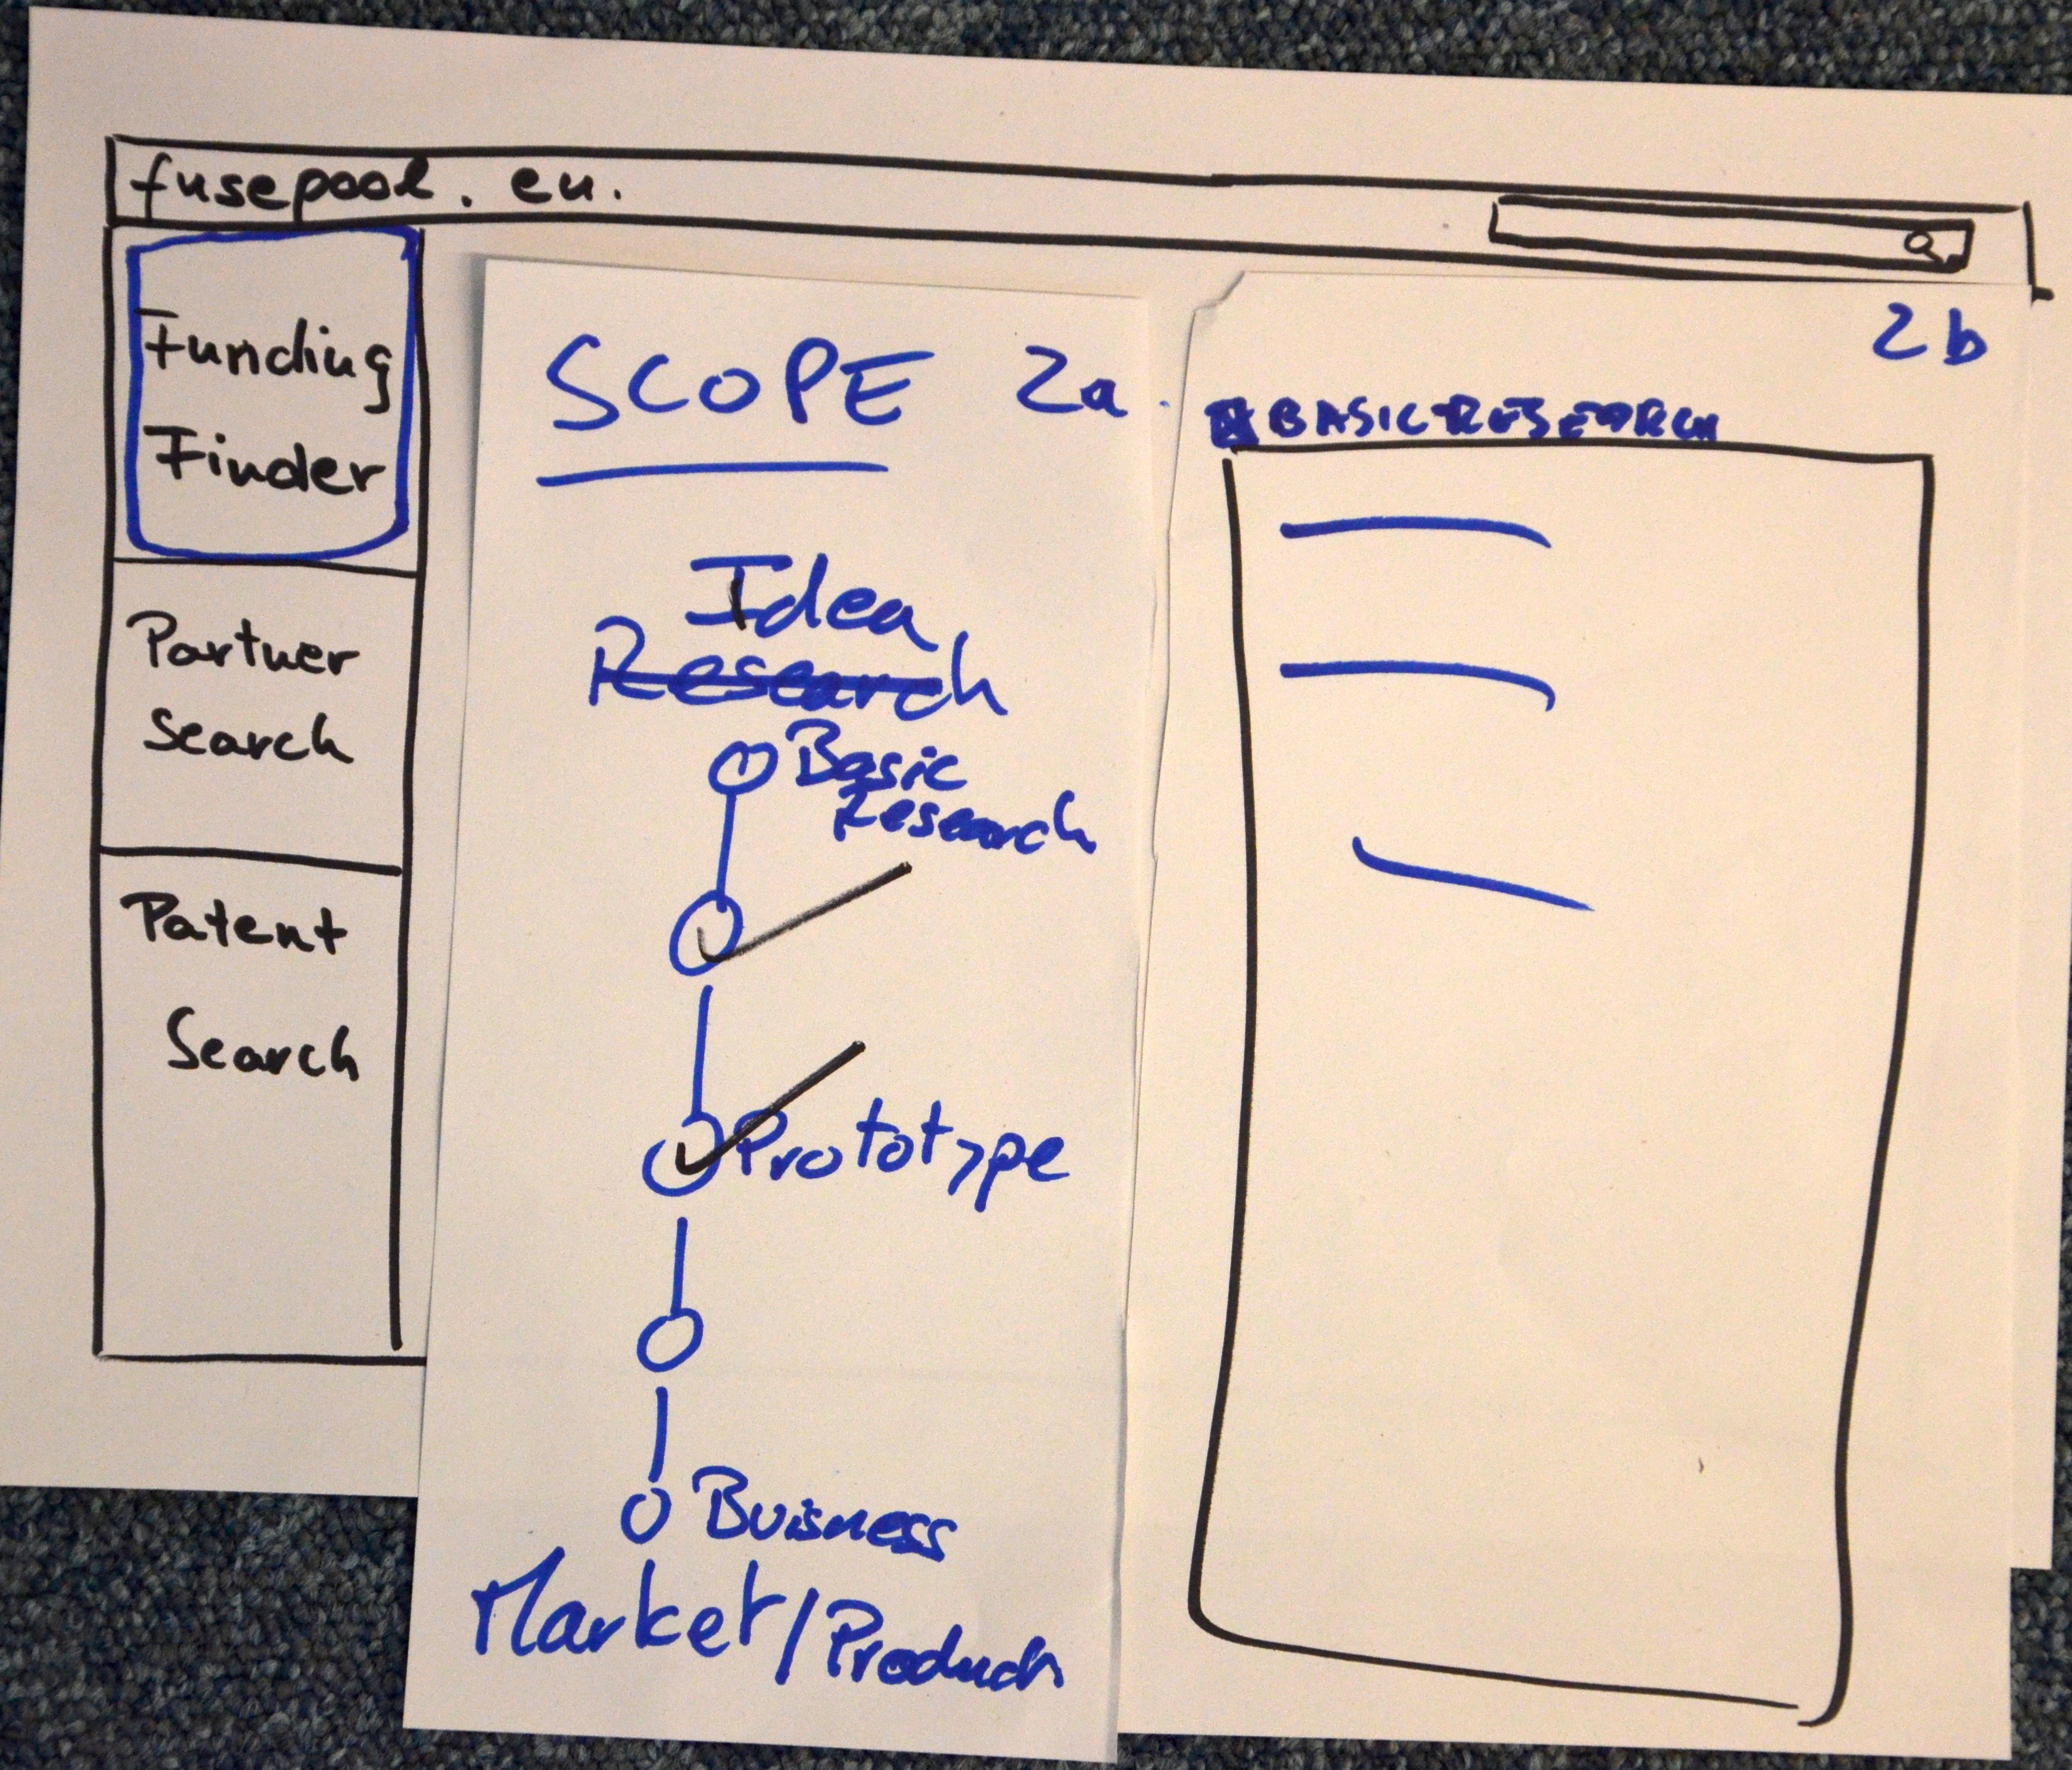 fusepool.eu.
Funding
Finder
Partner
Search
Patent
Search
SCOPE 2a.
Idea
Research
Basic
Research
Prototype
Buisness
Market/Product
2b
BASIC RESEARCH